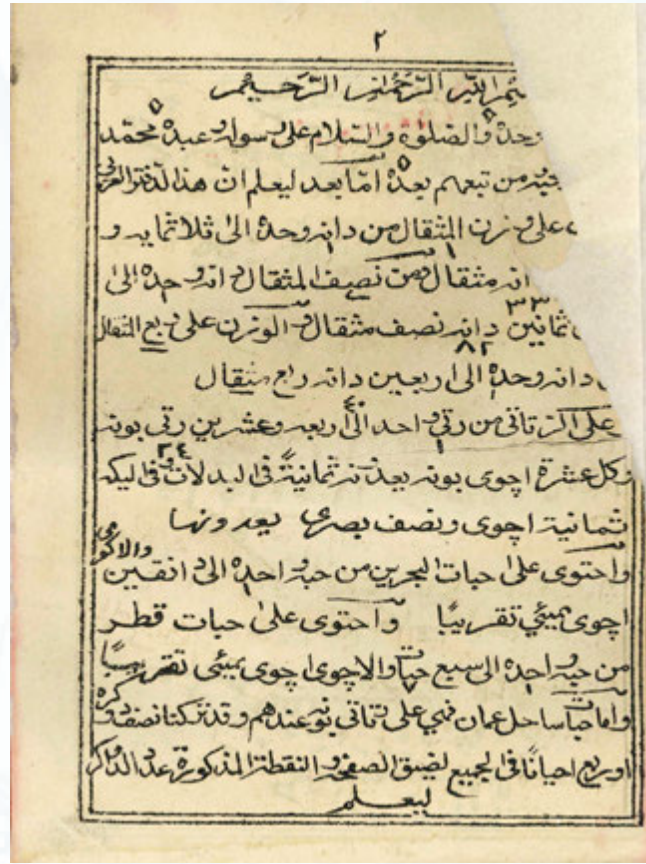 ٢
بسم الله الرحمن الرحيم
وحده والصلوة والسلام على رسوله وعبده محمد
من تبعهم بعده اما بعد ليعلم ان هذا الدفتر
على وزن المثقال من دانه وحده الى ثلاثمايه و
دانه مثقال ومن نصيف المثقال دانه وحده الى
٣٣٠
ثمانين دانه نصف مثقال والوزن على ربع المثقال
٨٢
دانه وحده الى اربعين دانه ربع مثقال
٤٠
على من رتي واحد الى اربعه وعشرين رتي بونه
٢٤
وكل عشرة اچوى بونه ثمانية فى البدلات
ثمانية اچوى ونصف يعدونها
واحتوى على حبات البحرين من حبه واحده الى
اچوى بمبئي تقريبًا واحتوى على حبات قطر
من حبه واحده الى سبع حبات والاچوى اچوى بمبئى تقريبًا
واما حبات ساحل عمان فهي على عندهم وقد تركنا نصف
او ربع احيانًا فى الجميع لضيق الصفحه و النقطة المذكورة
ليعلم